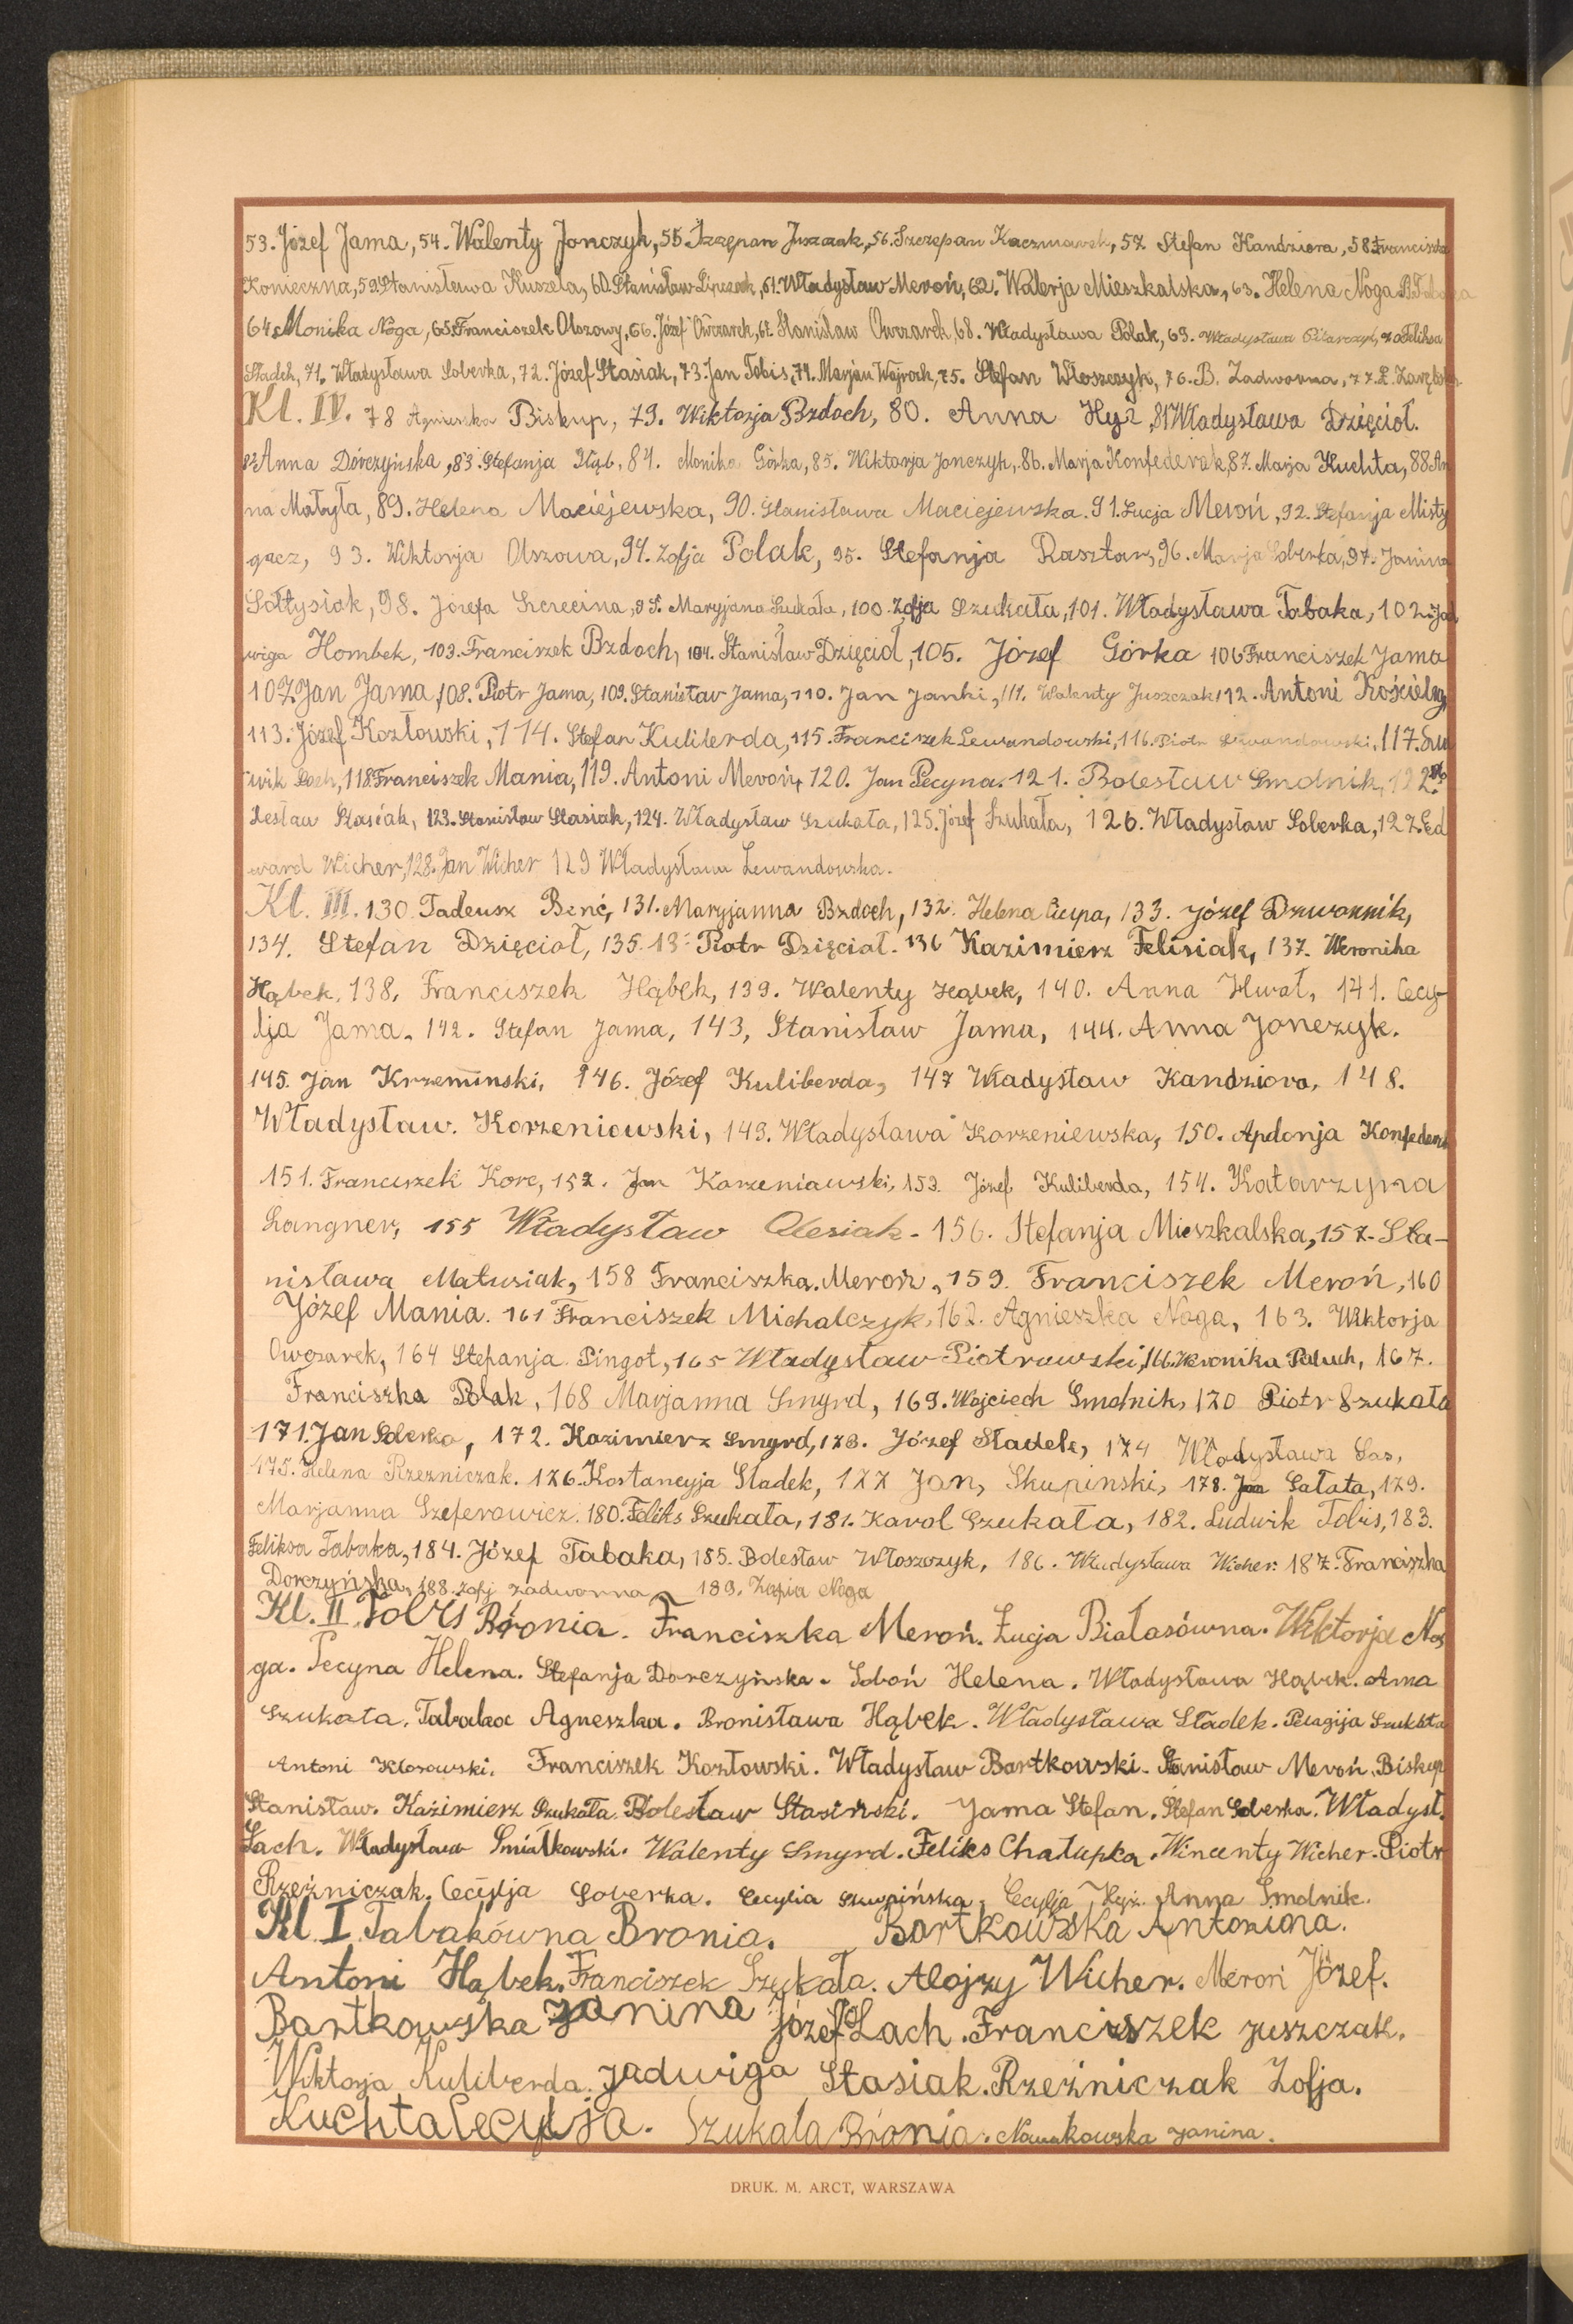 53. Józef Jama, 54. Walenty Jonczyk, 55. Szczepan Juszczak, 56. Szczepan Kaczmarek, 57 Stefan Kandziora, 58 Franciszka
Konieczna, 59. Stanisława Kuszela, 60. Stanisław Lipczak, 61. Władysław Meroń, 62. Walerja Mieszkalska, 63. Helena Noga
64. Monika Noga, 65. Franciszek Olszowy, 66. Józef Owczarek, 67. Stanisław Owczarek, 68. Władysława Polak, 69. Władysława Pilarczyk, 70 Feliksa
Sładek, 71. Władysława Soberka, 72. Józef Stasiak, 73. Jan Tobis, 74. Marjan Wajroch, 75. Stefan Włoszczyk, 76. B. Zadworna, 77.
Kl. IV. 78 Agnieszka Biskup, 79. Wiktorja Brdoch, 80. Anna Hyż, 81 Władysława Dzięcioł.
82 Anna Dorczyńska, 83. Stefanja Głąb, 84. Monika Górka, 85. Wiktorja Jonczyk, 86. Marja Konfederak, 87. Marja Kuchta, 88 An
na Matyla, 89. Helena Maciejewska, 90. Stanisława Maciejewska. 91. Łucja Meroń, 92. Stefanja Misty
gacz, 93. Wiktorja Olszowa, 94. Zofja Polak, 95. Stefanja Rasztar, 96. Marja Soberka, 97. Janina
Sołtysiak, 98. Józefa Szczecina, 99. Maryjana Szukała, 100. Zofja Szukała, 101. Władysława Tabaka, 102. Jad
wiga Hombek, 103. Franciszek Brdoch, 104. Stanisław Dzięcioł, 105. Józef Górka 106 Franciszek Jama
107. Jan Jama, 108. Piotr Jama, 109. Stanisław Jama, 110. Jan Janki, 111. Walenty Juszczak, 112. Antoni Kościelny
113. Józef Kozłowski, 114. Stefan Kuliberda, 115. Franciszek Lewandowski, 116. Piotr Lewandowski, 117. Lud
wik Lach, 118 Franciszek Mania, 119. Antoni Meroń, 120. Jan Pecyna. 121. Bolesław Smolnik, 122. Bo
lesław Stasiak, 123. Stanisław Stasiak, 124. Władysław Szukała, 125. Józef Szukała, 126. Władysław Soberka, 127. Ed
ward Wicher, 128. Jan Wicher 129 Władysława Lewandowska.
Kl. III. 130. Tadeusz Benć, 131. Maryjanna Brdoch, 132. Helena Ciupa, 133. Józef Dzwonnik,
134. Stefan Dzięcioł, 135. 13 Piotr Dzięcioł. 136 Kazimierz Felisiak, 137. Weronika
Hąbek, 138, Franciszek Hąbek, 139. Walenty Hąbek, 140. Anna Hwał, 141. Cecy-
lja Jama. 142. Stefan Jama, 143, Stanisław Jama, 144. Anna Jonczyk.
145. Jan Krzemiński, 146. Józef Kuliberda, 147 Władysław Kandziora, 148.
Władysław. Korzeniowski, 149. Władysława Korzeniewska, 150. Apolonja Konfederak
151. Franciszek Korc, 152. Jan Korzeniawski, 153. Józef Kuliberda, 154. Katarzyna
Langner, 155 Władysław Olesiak. 156. Stefanja Mieszkalska, 157. Sta-
nisława Matusiak, 158 Franciszka Meroń, 159. Franciszek Meroń, 160
Józef Mania. 161 Franciszek Michalczyk, 162. Agnieszka Noga, 163. Wiktorja
Owczarek, 164 Stefanja Pingot, 165 Władysław Piotrowski, 166. Weronika Paluch, 167.
Franciszka Polak, 168 Marjanna Smyrd, 169. Wojciech Smolnik, 170 Piotr Szukała
171. Jan Soberka, 172. Kazimierz Smyrd, 173. Józef Sładek, 174 Władysława Sas,
175. Helena Rzezniczak. 176. Kostancyja Sladek, 177 Jan, Skupinski, 178. Jan Sałata, 179.
Marjanna Szeferowicz. 180. Feliks Szukała, 181. Karol Szukała, 182. Ludwik Tobis, 183.
Feliksa Tabaka, 184. Józef Tabaka, 185. Bolesław Włoszczyk, 186. Władysława Wicher. 187. Franciszka
Dorczyńska, 188. Zofj Zadworna, 189. Zofia Noga
Kl. II Tobis Bronia. Franciszka Meroń. Łucja Białasówna. Wiktorja No
ga. Pecyna Helena. Stefanja Dorczyńska. Soboń Helena. Władysława Hąbek. Anna
Szukała. Tabaka Agneszka. Bronisława Hąbek. Władysława Sładek. Pelagija Szukała
Antoni Kłosowski. Franciszek Kozłowski. Władysław Bartkowski. Stanisław Meroń. Biskup
Stanisław. Kazimierz Szukała. Bolesław Stasiński. Jama Stefan. Stefan Soberka. Władysł.
Lach. Władysław Śmiałkowski. Walenty Smyrd. Feliks Chałupka. Wincenty Wicher. Piotr
Rzeźniczak. Cecylja Soberka. Cecylia Skupińska, Cecylja Hyż. Anna Smolnik.
Kl. I Tabakówna Bronia. Bartkowska Antonina.
Antoni Hąbek. Franciszek Szukała. Alojzy Wicher. Meroń Józef.
Bartkowska Janina Józef Lach. Franciszek Juszczak.
Wiktorja Kuliberda. Jadwiga Stasiak. Rzeźniczak Zofja.
Kuchta Cecylja. Szukała Bronia. Nowakowska Janina.
DRUK. M. ARCT, WARSZAWA